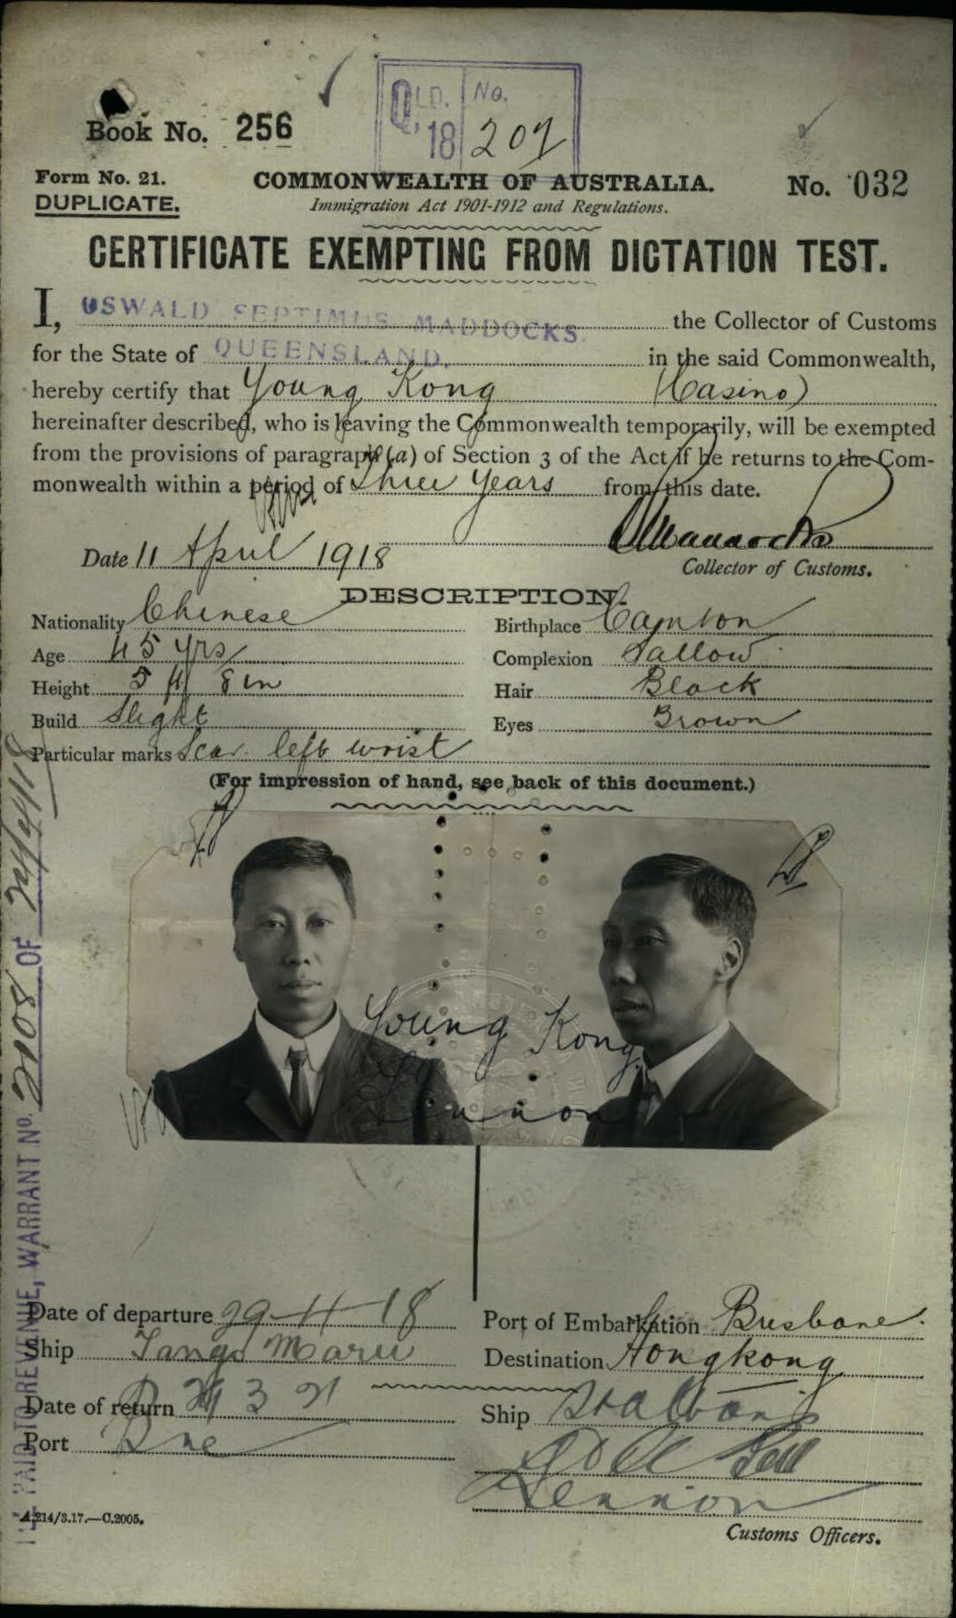 QLD. No.
18 207
Book No. 256
Form No. 21.
DUPLICATE.
COMMONWEALTH OF AUSTRALIA.
Immigration Act 1901-1912 and Regulations.
No. 032
CERTIFICATE EXEMPTING FROM DICTATION TEST.
I, OSWALD SEPTIMUS MADDOCKS. the Collector of Customs
for the State of QUEENSLAND. in the said Commonwealth,
hereby certify that Young Kong (Casino)
hereinafter described, who is leaving the Commonwealth temporarily, will be exempted
from the provisions of paragraph (a) of Section 3 of the Act if he returns to the Com-
monwealth within a period of Three Years from this date.
Date 11 April 1918
Collector of Customs.
DESCRIPTION.
Nationality Chinese
Birthplace Canton
Age 45 yrs
Complexion Sallow
Height 5 ft 8 in
Hair Black
Build Slight
Eyes Brown
Particular marks Scar left wrist
(For impression of hand, see back of this document.)
Young Kong
Lennon
Date of departure 29-4-18
Port of Embarkation Brisbane.
Ship Tango Maru
Destination Hongkong
Date of return 3 21
Ship St Albans
Port Bne
Lennon
Customs Officers.
A.214/3.17.—C.2005.
PAID TO REVENUE, WARRANT No. 2108 OF 24/4/18